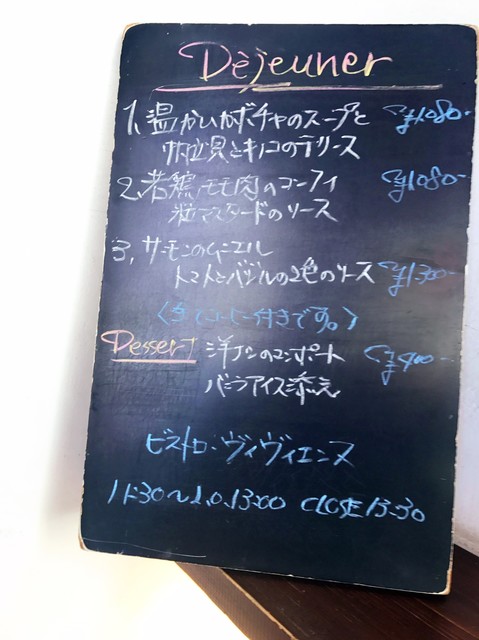 Déjeuner
1. 温かいカボチャのスープと ¥1080-
帆立貝とキノコのテリーヌ
2. 若鶏モモ肉のコンフィ ¥1080-
粒マスタードのソース
3. サーモンのムニエル
トマトとバジルの2色のソース ¥1300-
〈全てコーヒー付きです。〉
Dessert 洋ナシのコンポート ¥400-
バニラアイス添え
ビストロ・ヴィヴィエンヌ
11:30〜L.O.13:00 CLOSE 13:30